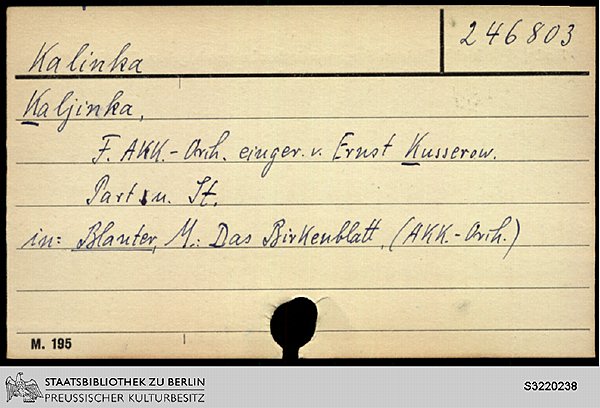 Kalinka
246803
Kaljinka,
F. AKK.-Orch. einger. v. Ernst Kusserow.
Part. u. St.
in: Blanter, M.: Das Birkenblatt, (AKK.-Orch.)
M. 195
STAATSBIBLIOTHEK ZU BERLIN
PREUSSISCHER KULTURBESITZ
S3220238